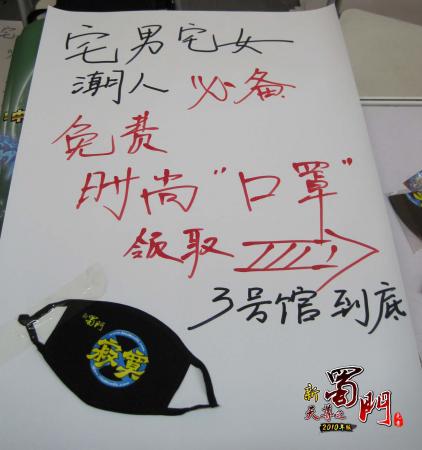 宅男宅女
潮人 必备
免费
时尚"口罩"
领取
3号馆到底
蜀門
寂寞
新蜀門
天尊之
2010年版